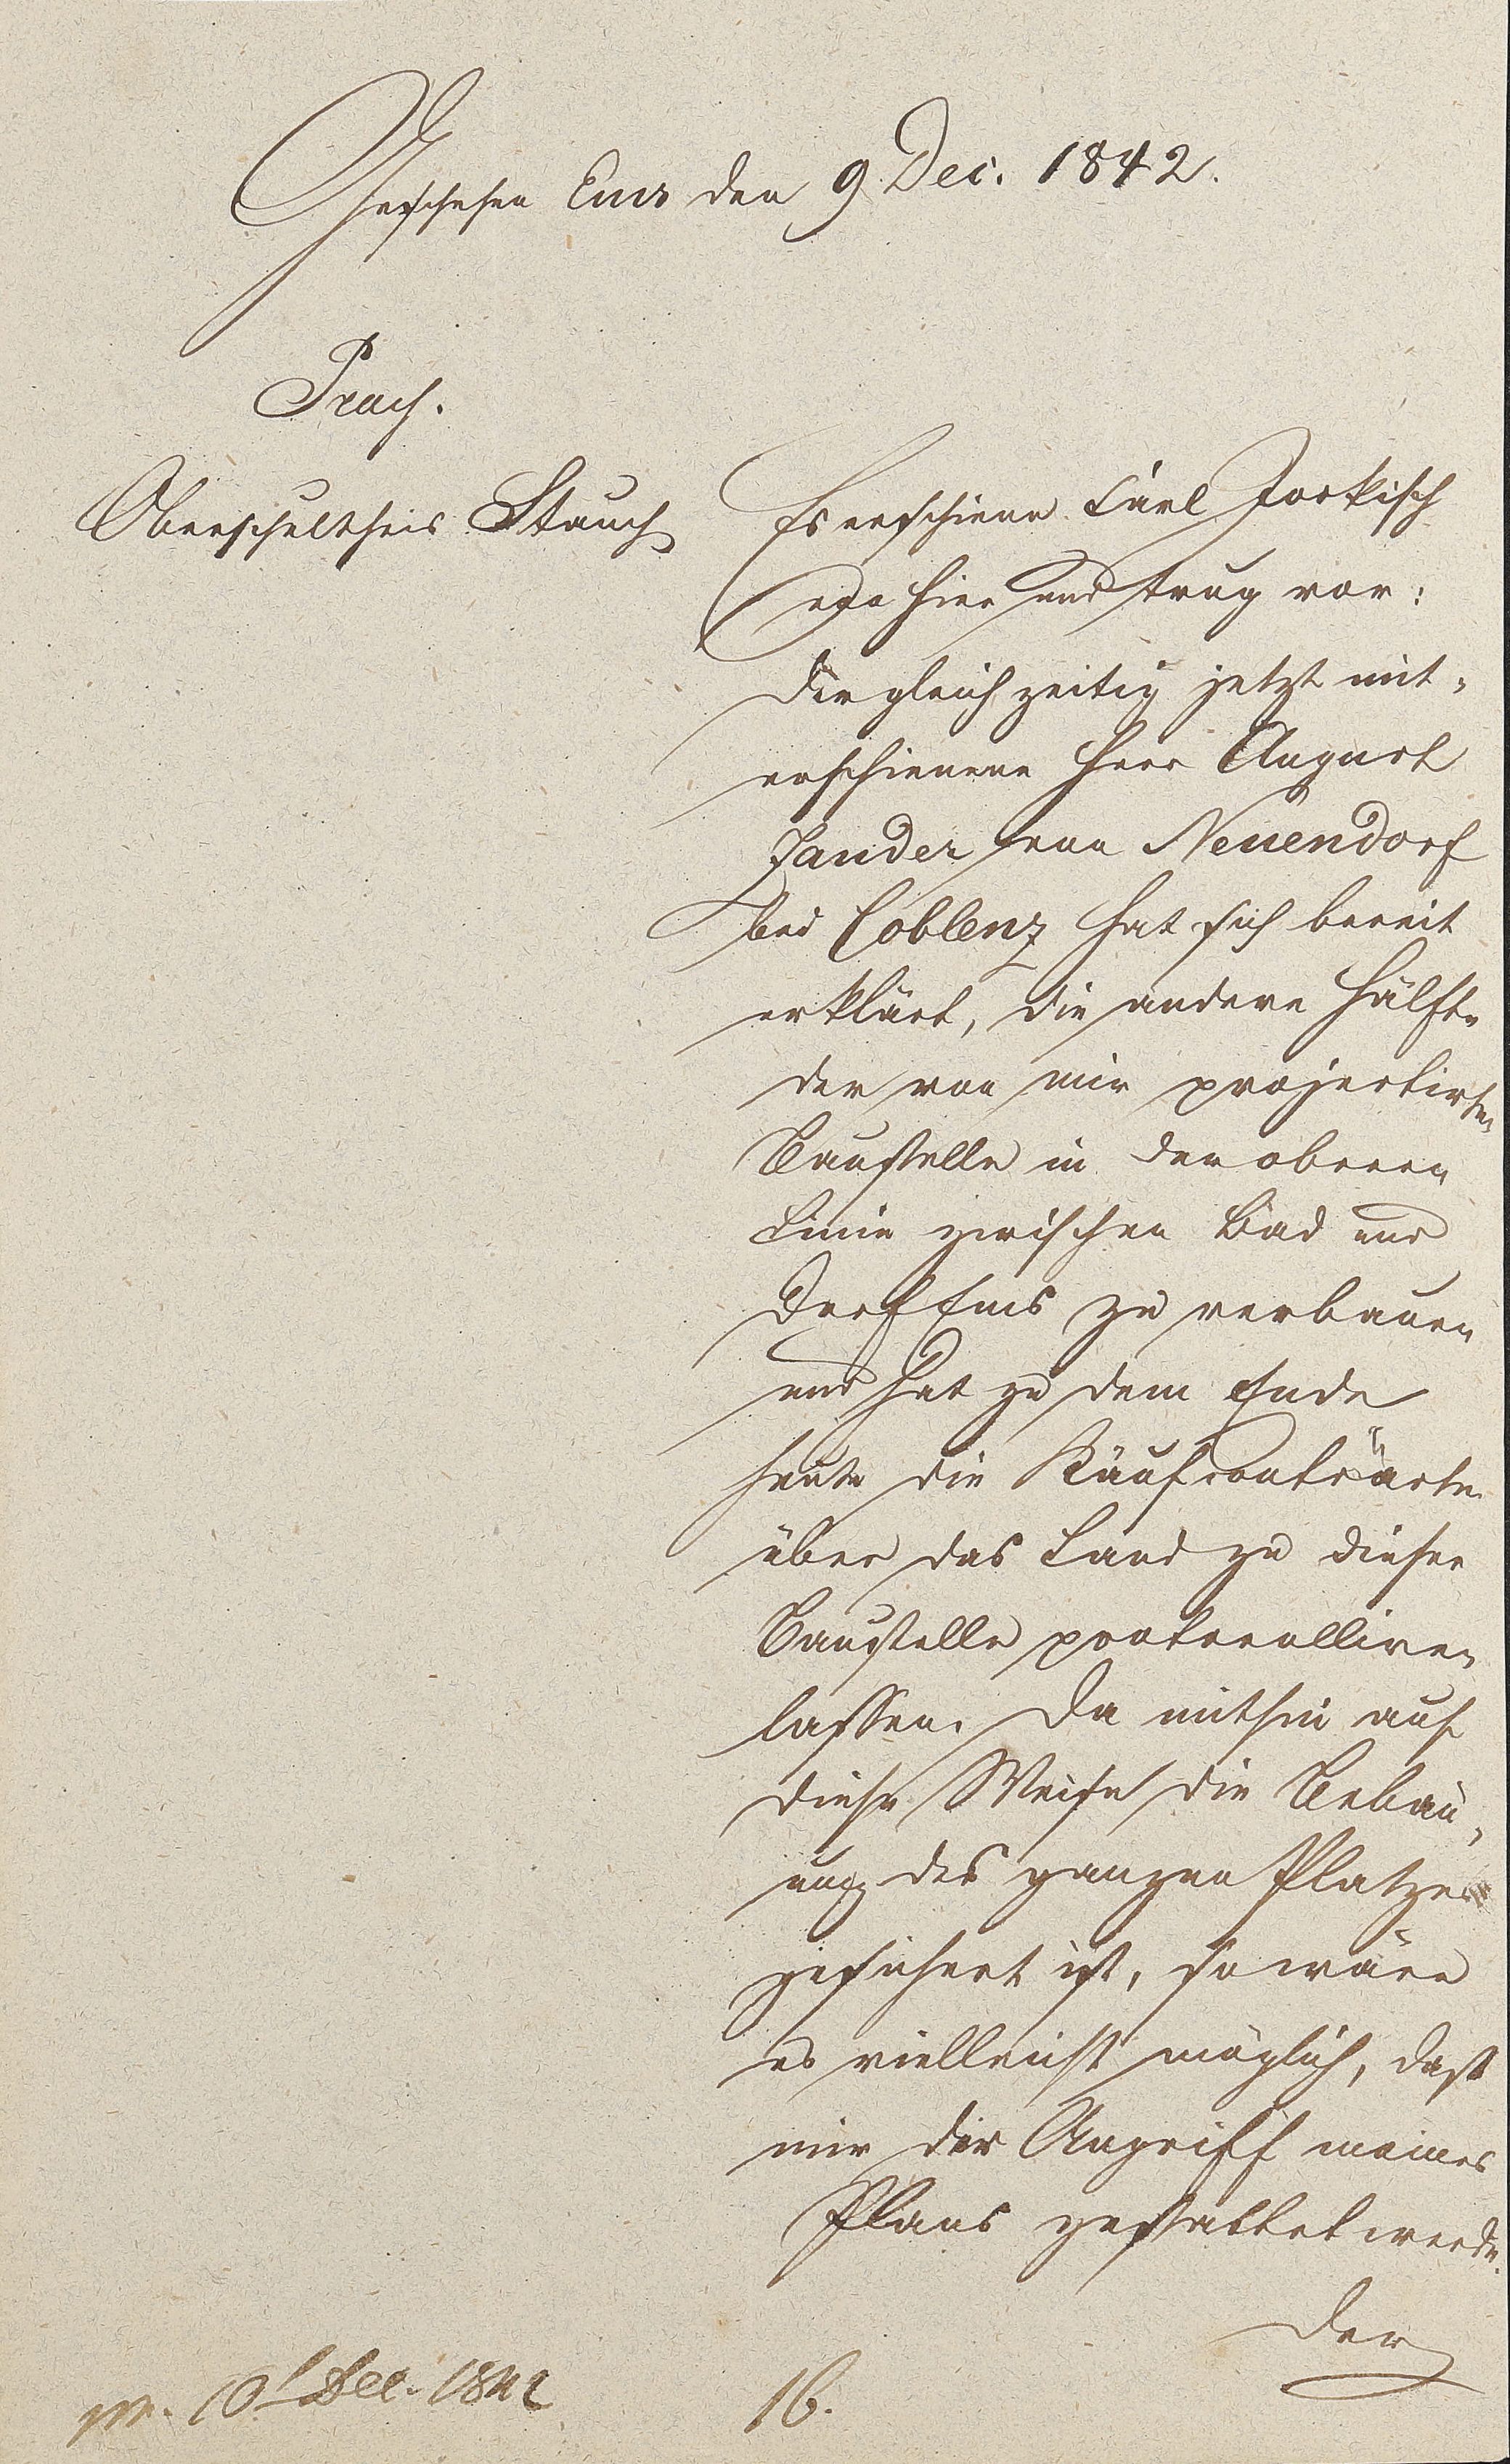 Geschehen Ems den 9 Dec. 1842.
Praes.
Oberschultheis Stauch
Es erschiene Carl Jorkisch
von hier und trug vor:
Der gleichzeitig jetzt mit-
erschienene Herr August
Zander von Neuendorf
bei Coblenz hat sich bereit
erklärt, die andere Hälfte
der von mir projectirten
Baustelle in der oberen
Linie zwischen Bad und
Dorf Ems zu verbauen
und hat zu dem Ende
heute die Kaufcontracte
über das Land zu dieser
Baustelle protocolliren
lassen. Da mithin auf
diese Weise die Bebau-
ung des ganzen Platzes
gesichert ist, so wäre
es vielleicht möglich, daß
mir der Angriff meines
Plans gestattet werde.
Der
pr. 10t Dec. 1842
16.